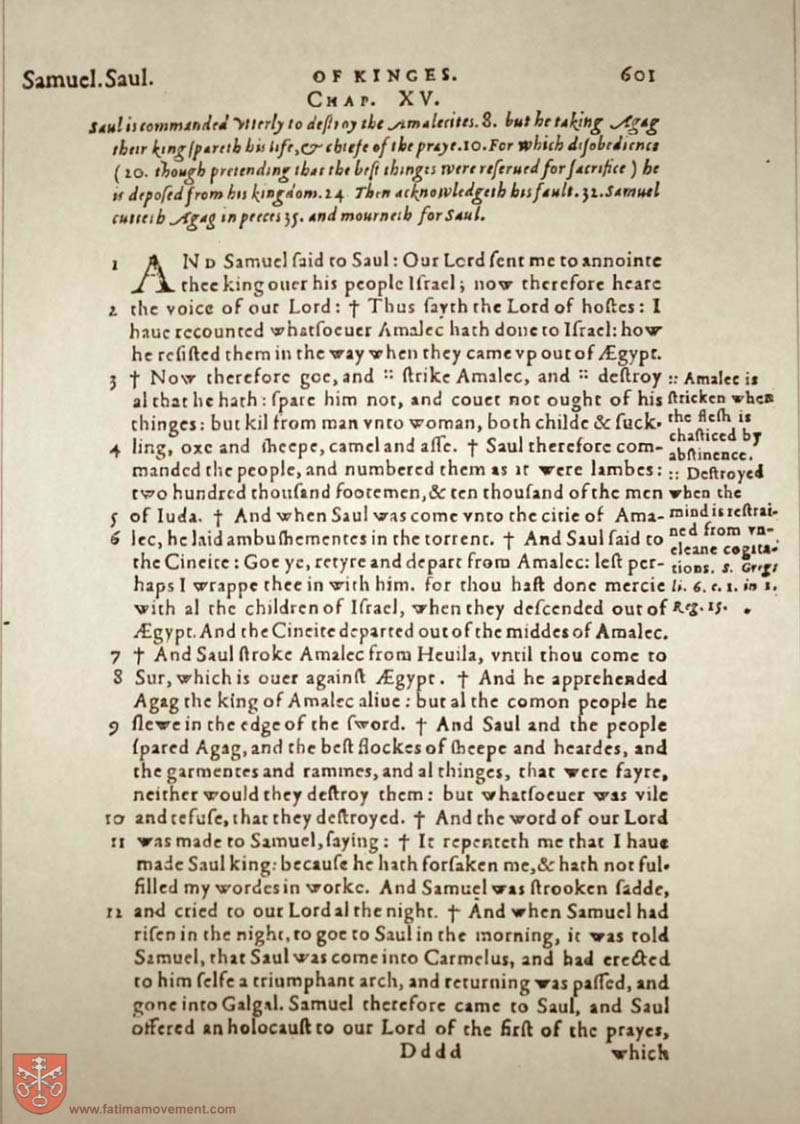 Samuel. Saul.
OF KINGES.
601
CHAP. XV.
Saul is commanded vtterly to deſtroy the Amalecites. 8. but he taking Agag
their king ſpareth his life, & chiefe of the praye. 10. For which diſobedience
(20. though pretending that the beſt thinges were reſerued for ſacrifice) he
is depoſed from his kingdom. 24 Then acknowledgeth his fault. 32. Samuel
cutteth Agag in peeces 35. and mourneth for Saul.
1 AND Samuel ſaid to Saul: Our Lord ſent me to annointe
thee king ouer his people Iſrael; now therefore heare
2 the voice of our Lord: † Thus ſayth the Lord of hoſtes: I
haue recounted whatſoeuer Amalec hath done to Iſrael: how
he reſiſted them in the way when they came vp out of Ægypt.
3 † Now therefore goe, and :: ſtrike Amalec, and :: deſtroy
al that he hath: ſpare him not, and couet not ought of his
thinges: but kil from man vnto woman, both childe & ſuck-
4 ling, oxe and ſheepe, camel and aſſe. † Saul therefore com-
manded the people, and numbered them as it were lambes:
two hundred thouſand footemen, & ten thouſand of the men
5 of Iuda. † And when Saul was come vnto the citie of Ama-
6 lec, he laid ambuſhementes in the torrent. † And Saul ſaid to
the Cineite: Goe ye, retyre and depart from Amalec: leſt per-
haps I wrappe thee in with him. for thou haſt done mercie
with al the children of Iſrael, when they deſcended out of
Ægypt. And the Cineite departed out of the middes of Amalec.
7 † And Saul ſtroke Amalec from Heuila, vntil thou come to
8 Sur, which is ouer againſt Ægypt. † And he apprehended
Agag the king of Amalec aliue: but al the comon people he
9 ſlewe in the edge of the ſword. † And Saul and the people
ſpared Agag, and the beſt flockes of ſheepe and heardes, and
the garmentes and rammes, and al thinges, that were fayre,
neither would they deſtroy them: but whatſoeuer was vile
10 and refuſe, that they deſtroyed. † And the word of our Lord
11 was made to Samuel, ſaying: † It repenteth me that I haue
made Saul king: becauſe he hath forſaken me, & hath not ful-
filled my wordes in worke. And Samuel was ſtrooken ſadde,
12 and cried to our Lord al the night. † And when Samuel had
riſen in the night, to goe to Saul in the morning, it was told
Samuel, that Saul was come into Carmelus, and had erected
to him ſelfe a triumphant arch, and returning was paſſed, and
gone into Galgal. Samuel therefore came to Saul, and Saul
offered an holocauſt to our Lord of the firſt of the prayes,
Dddd
which
:: Amalec is
ſtricken when
the fleſh is
chaſticed by
abſtinence.
:: Deſtroyed
when the
mind is reſtrai-
ned from vn-
cleane cogita-
tions. S. Greg.
li. 6. c. 1. in 1.
Reg. 15.
www.fatimamovement.com